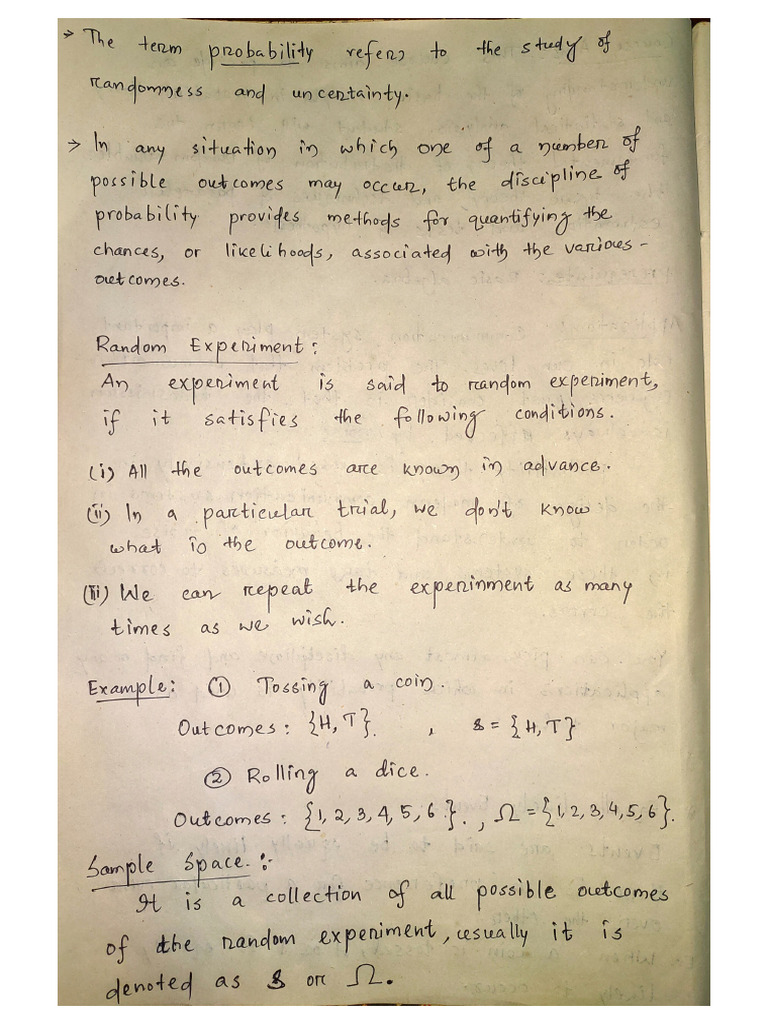 → The term probability refers to the study of
randomness and uncertainty.
→ In any situation in which one of a number of
possible outcomes may occur, the discipline of
probability provides methods for quantifying the
chances, or likelihoods, associated with the various-
outcomes.
Random Experiment:
An experiment is said to random experiment,
if it satisfies the following conditions.
(i) All the outcomes are known in advance.
(ii) In a particular trial, we don't know
what is the outcome.
(iii) We can repeat the experinment as many
times as we wish.
Example: ① Tossing a coin.
Outcomes: {H, T}. , S = {H, T}
② Rolling a dice.
Outcomes: {1, 2, 3, 4, 5, 6}. , Ω = {1, 2, 3, 4, 5, 6}.
Sample Space.:-
It is a collection of all possible outcomes
of the random experiment, usually it is
denoted as S or Ω.